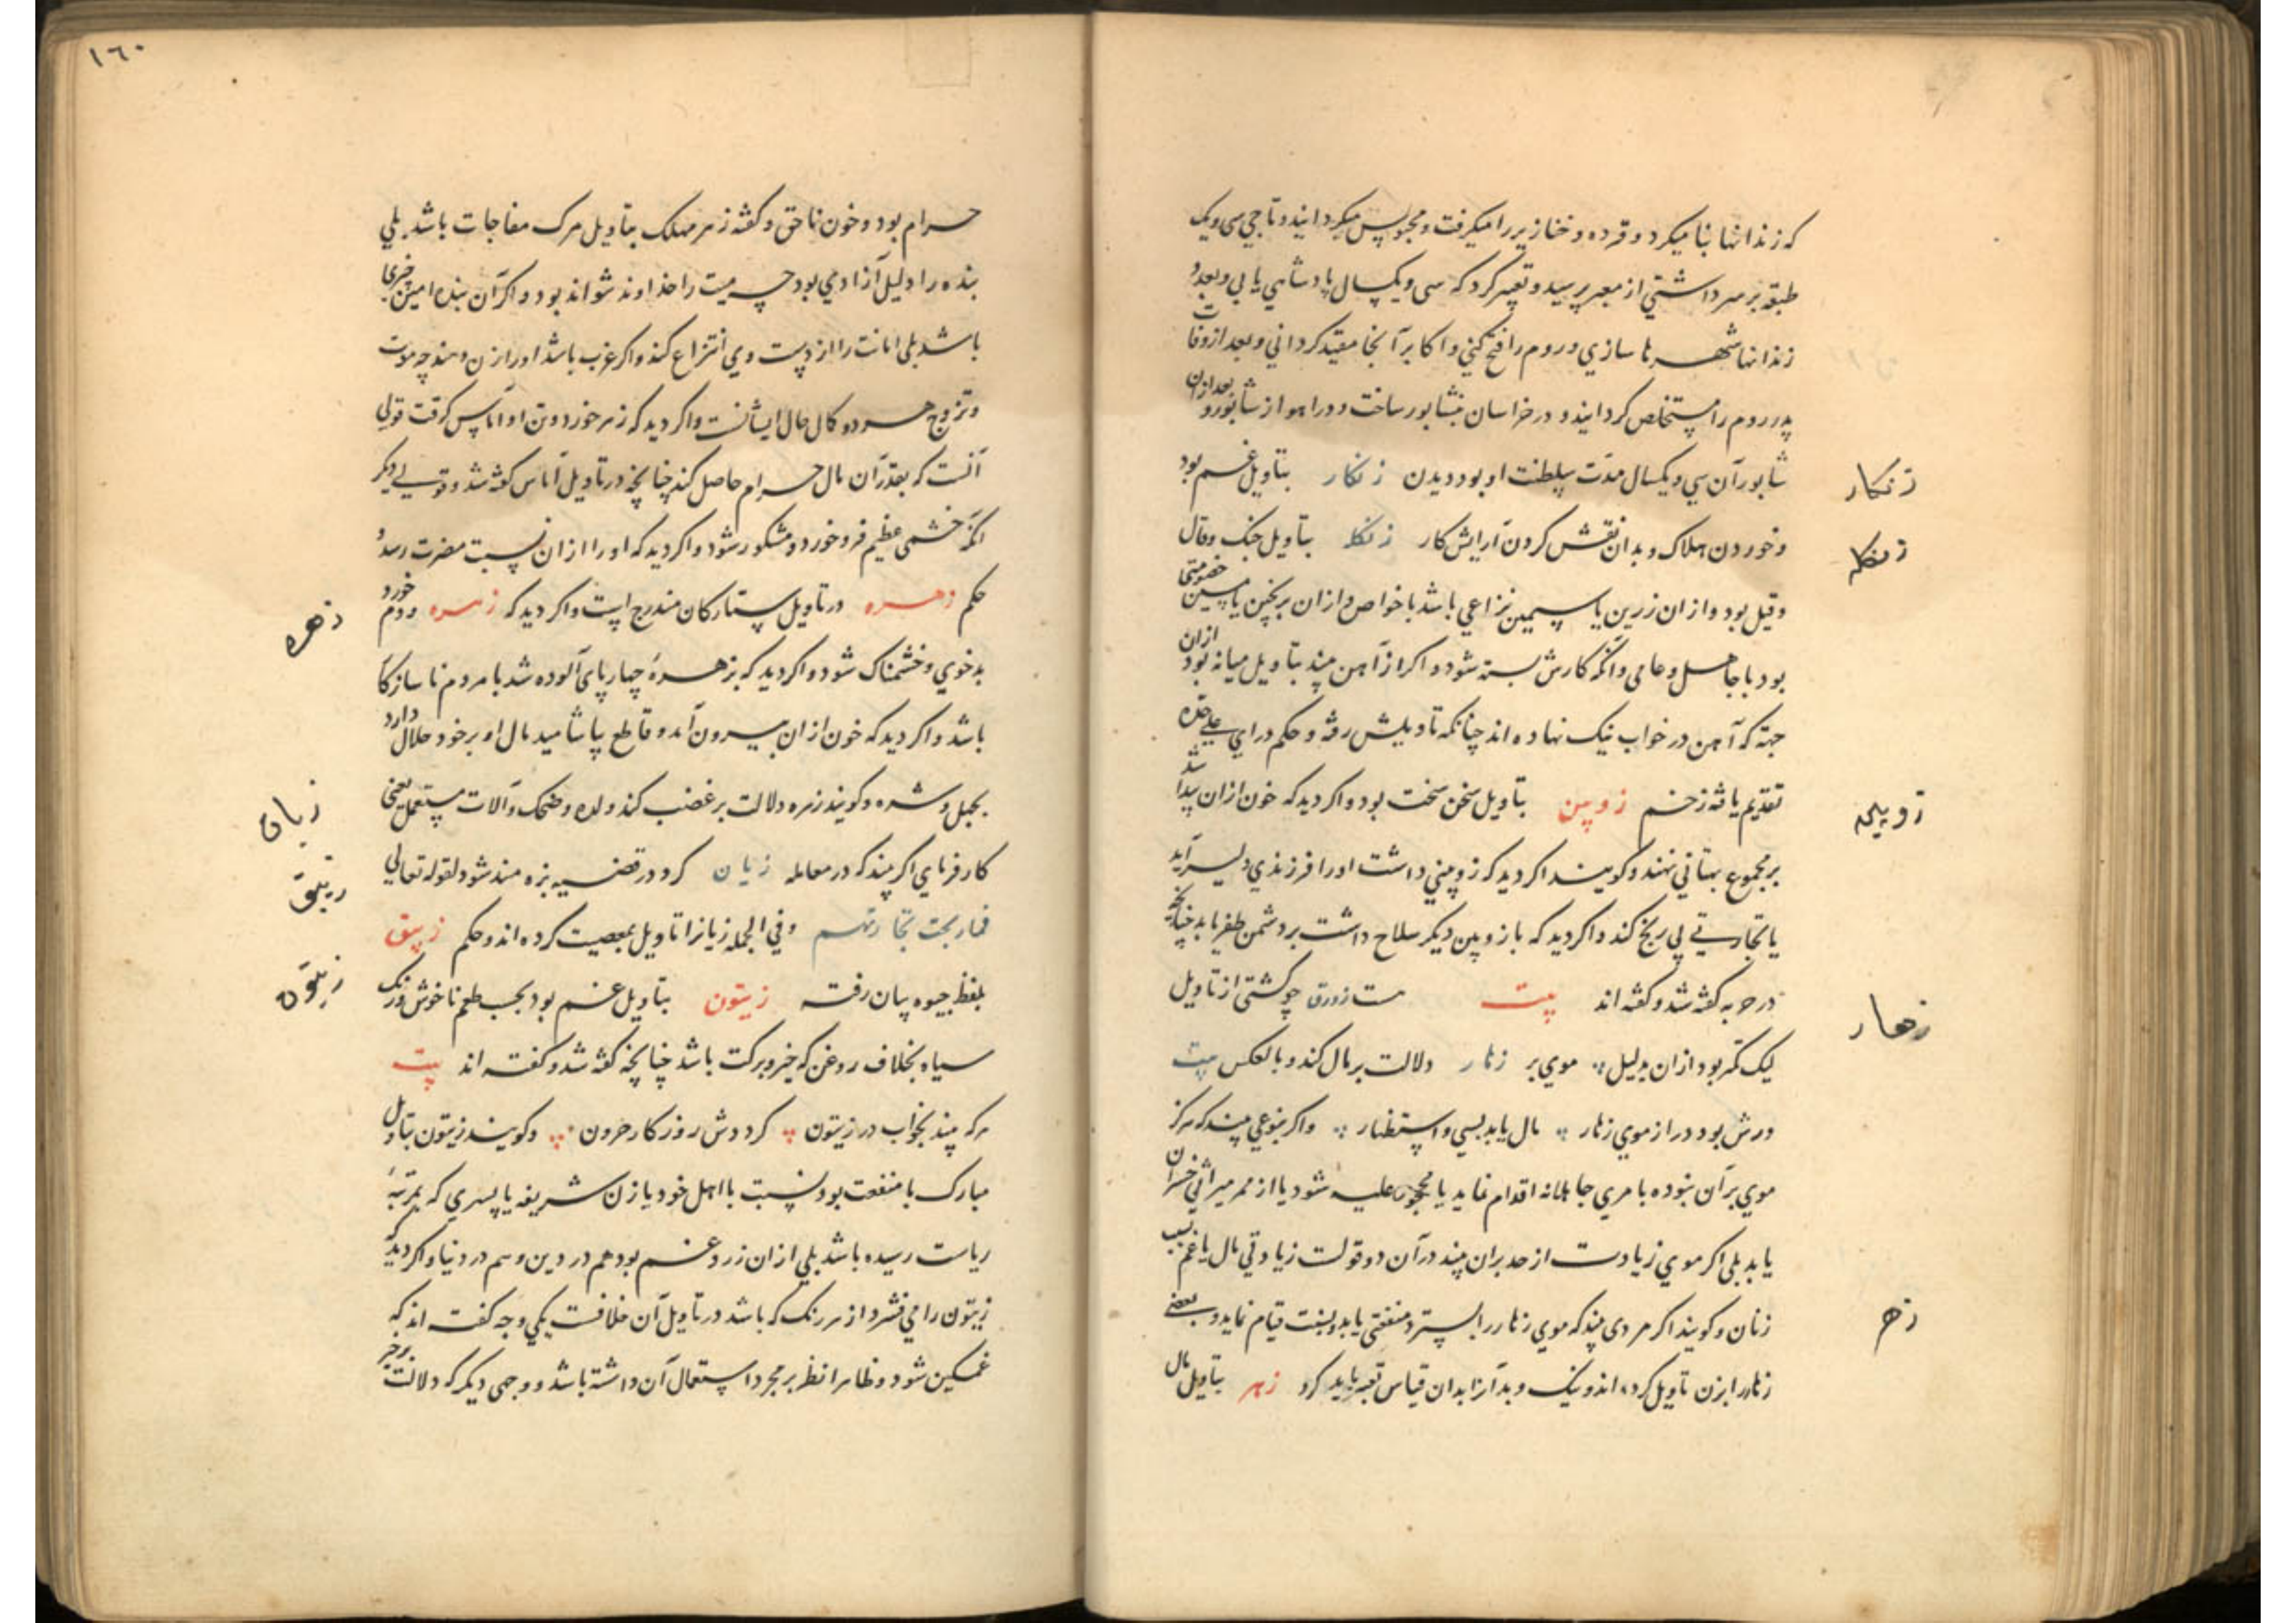 که زندانها بنا میکرد و قرده و خنازیر را میگرفت و محبوس میگردانید و تاجی سی و یک
طبقه بر سر داشتی از معبر پرسید و تعبیر کرد که سی و یکسال پادشاهی یابی و بعدد
زندانها شهرها سازی و روم را فتح کنی و اکابر آنجا مقید گردانی و بعد از وفات
پدر روم را مستخلص گردانید و در خراسان نیشابور ساخت و در اهواز شابور و بعد ازان
شابور آن سی و یکسال مدت سلطنت او بود و دیدن زنکار بتاویل غم بود
زنکار
و خوردن هلاک و بدان نقش کردن آرایش کار زنکله بتاویل جنک و قال
زنکله
و قیل بود و ازان زرین یا سیمین نزاعی باشد با خواص و ازان برنجین یا مسین خصومتی
بود با جاهل و عامی و آنکه کارش بسته شود و اگر از آهن بیند بتاویل میانه بود ازان
جهة که آهن در خواب نیک نهاده اند چنانکه تاویلش رفته و حکم درای علیحده
تقدیم یافته زخم زوبین بتاویل سخن سخت بود و اگر دید که خون ازان پیدا شد
زوبین
بر مجموع بهتانی نهند و گویند اگر دید که زوبینی داشت او را فرزندی دلیر آید
یا تجارتی بی رنج کند و اگر دید که با زوبین دیگر سلاح داشت بر دشمن ظفر یابد چنانچه
در حربه گفته شد و گفته اند بیت هست زورق چو کشتی از تاویل
لیک کمتر بود ازان بدلیل موی بر زهار دلالت بر مال کند و بالعکس بیت
زهار
ورش بود دراز موی زهار مال یابد بسی و استظهار و اگر بنوعی بیند که هرگز
موی بر آن نبوده بامری جاهلانه اقدام نماید یا محجور علیه شود یا از ممر میراثی خسران
یابد بلی اگر موی زیادت از حد بران بیند در آن دو قولست زیادتی مال یا غم بسبب
زنان و گویند اگر مردی بیند که موی زهار را بسترد منفعتی یابد و بسنت قیام نماید و بعضی
زهر
زهار را بزن تاویل کرده اند و نیک و بد آنرا بدان قیاس تعبیر باید کرد زهر بتاویل مال
١٦٠
حرام بود و خون ناحق و گفته زهر مهلک بتاویل مرک مفاجات باشد بلی
بنده را دلیل آزادی بود چه میت را خداوند نتواند بود و اگر آن بنده امین چیزی
باشد بلی امانت را از دست وی انتزاع کند و اگر عزب باشد او را زن دهند چه موت
و تزوج هر دو کمال حال ایشانست و اگر دید که زهر خورد و تن او آماس گرفت قولی
آنست که بقدر آن مال حرام حاصل کند چنانچه در تاویل آماس گفته شد و قولی دیگر
آنکه خشمی عظیم فرو خورد و مشکور شود و اگر دید که او را ازان نسبت مضرت رسد
حکم زهره در تاویل ستارگان مندرج است و اگر دید که زهره مردم خورد
زهره
بدخوی و خشمناک شود و اگر دید که بزهرهٔ چهارپای آلوده شد با مردم ناسازکار
باشد و اگر دید که خون ازان بیرون آمد و قاطع بیاشامید مال او بر خود حلال دارد
بحیل و شره و گویند زهره دلالت بر غضب کند و لده و ضحک و آلات مستعمل یعنی
زیان
کارفرمای اگر بیند که در معامله زیان کرد در قضیه بزه مند شود لقوله تعالی
زیبق
فما ربحت تجارتهم و فی الجمله زیانرا تاویل بمعصیت کرده اند و حکم زیبق
بلفظ جیوه بیان رفته زیتون بتاویل غم بود بحسب طعم ناخوش و رنک
زیتون
سیاه بخلاف روغن که خیر و برکت باشد چنانچه گفته شد و گفته اند بیت
هر که بیند بخواب در زیتون گرددش روزگار حرون و گویند زیتون بتاویل
مبارک با منفعت بود نسبت با اهل خود یا زن شریفه یا پسری که بمرتبهٔ
ریاست رسیده باشد بلی ازان زرد غم بود هم در دین و هم در دنیا و اگر دید که
زیتون را می فشرد از هر رنک که باشد در تاویل آن خلافست یکی وجه گفته اند که
غمگین شود و ظاهرا نظر بر مجرد استعمال آن داشته باشد و وجهی دیگر که دلالت بر خیر